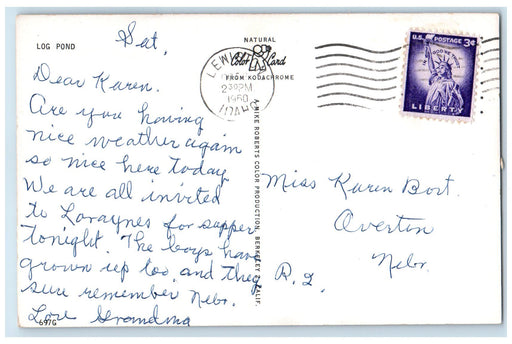 LOG POND
Sat,
Dear Karen.
Are you having
nice weather again
so nice here today
We are all invited
toLoraynes for supper
tonight. The boys have
grown up too, and they
sure remember Nebr.
Love Grandma
697G
NATURAL
Color Card
FROM KODACHROME
MIKE ROBERTS COLOR PRODUCTION, BERKELEY, CALIF.
2 PM
1960
IDAHO
U.S. POSTAGE 3¢
IN GOD WE TRUST
LIBERTY
Miss Karen Bort.
Overton
Nebr.
R. 2.